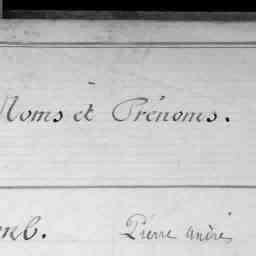 Noms et Prénoms.
Pierre André